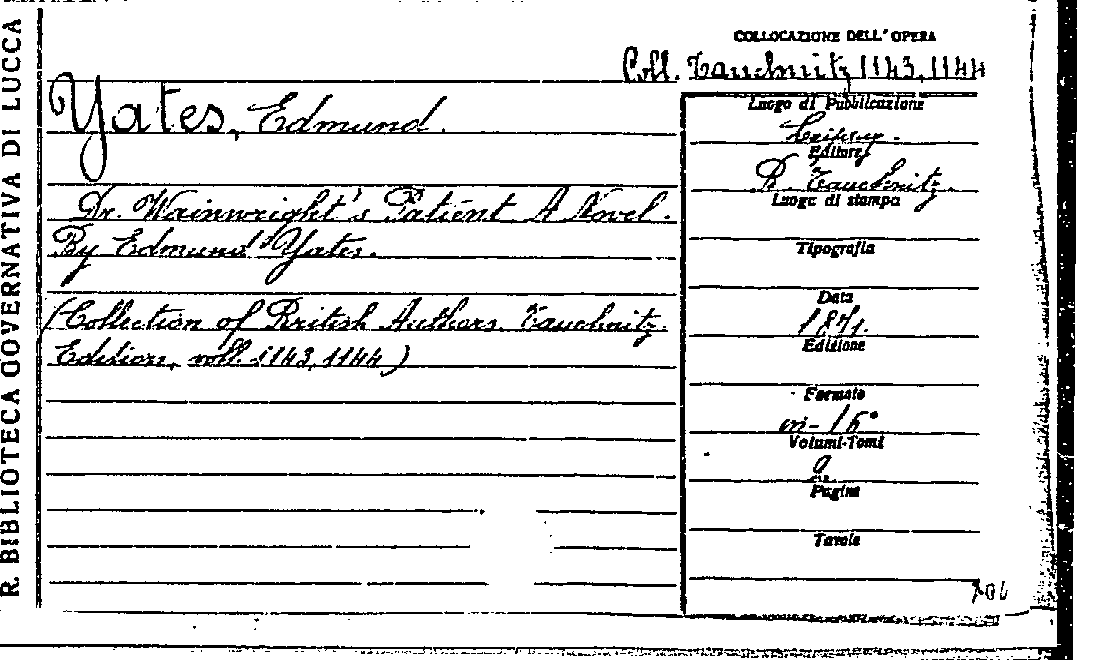 R. BIBLIOTECA GOVERNATIVA DI LUCCA
COLLOCAZIONE DELL'OPERA
Coll. Tauchnitz 1143, 1144
Yates, Edmund.
Dr. Wainwright's Patient A Novel.
By Edmund Yates.
(Collection of British Authors. Tauchnitz
Edition, voll. 1143, 1144)
Luogo di Pubblicazione
Leipzig.
Editore
B. Tauchnitz.
Luogo di stampa
Tipografia
Data
1871.
Edizione
Formato
in-16°
Volumi-Tomi
2
Pagine
Tavole